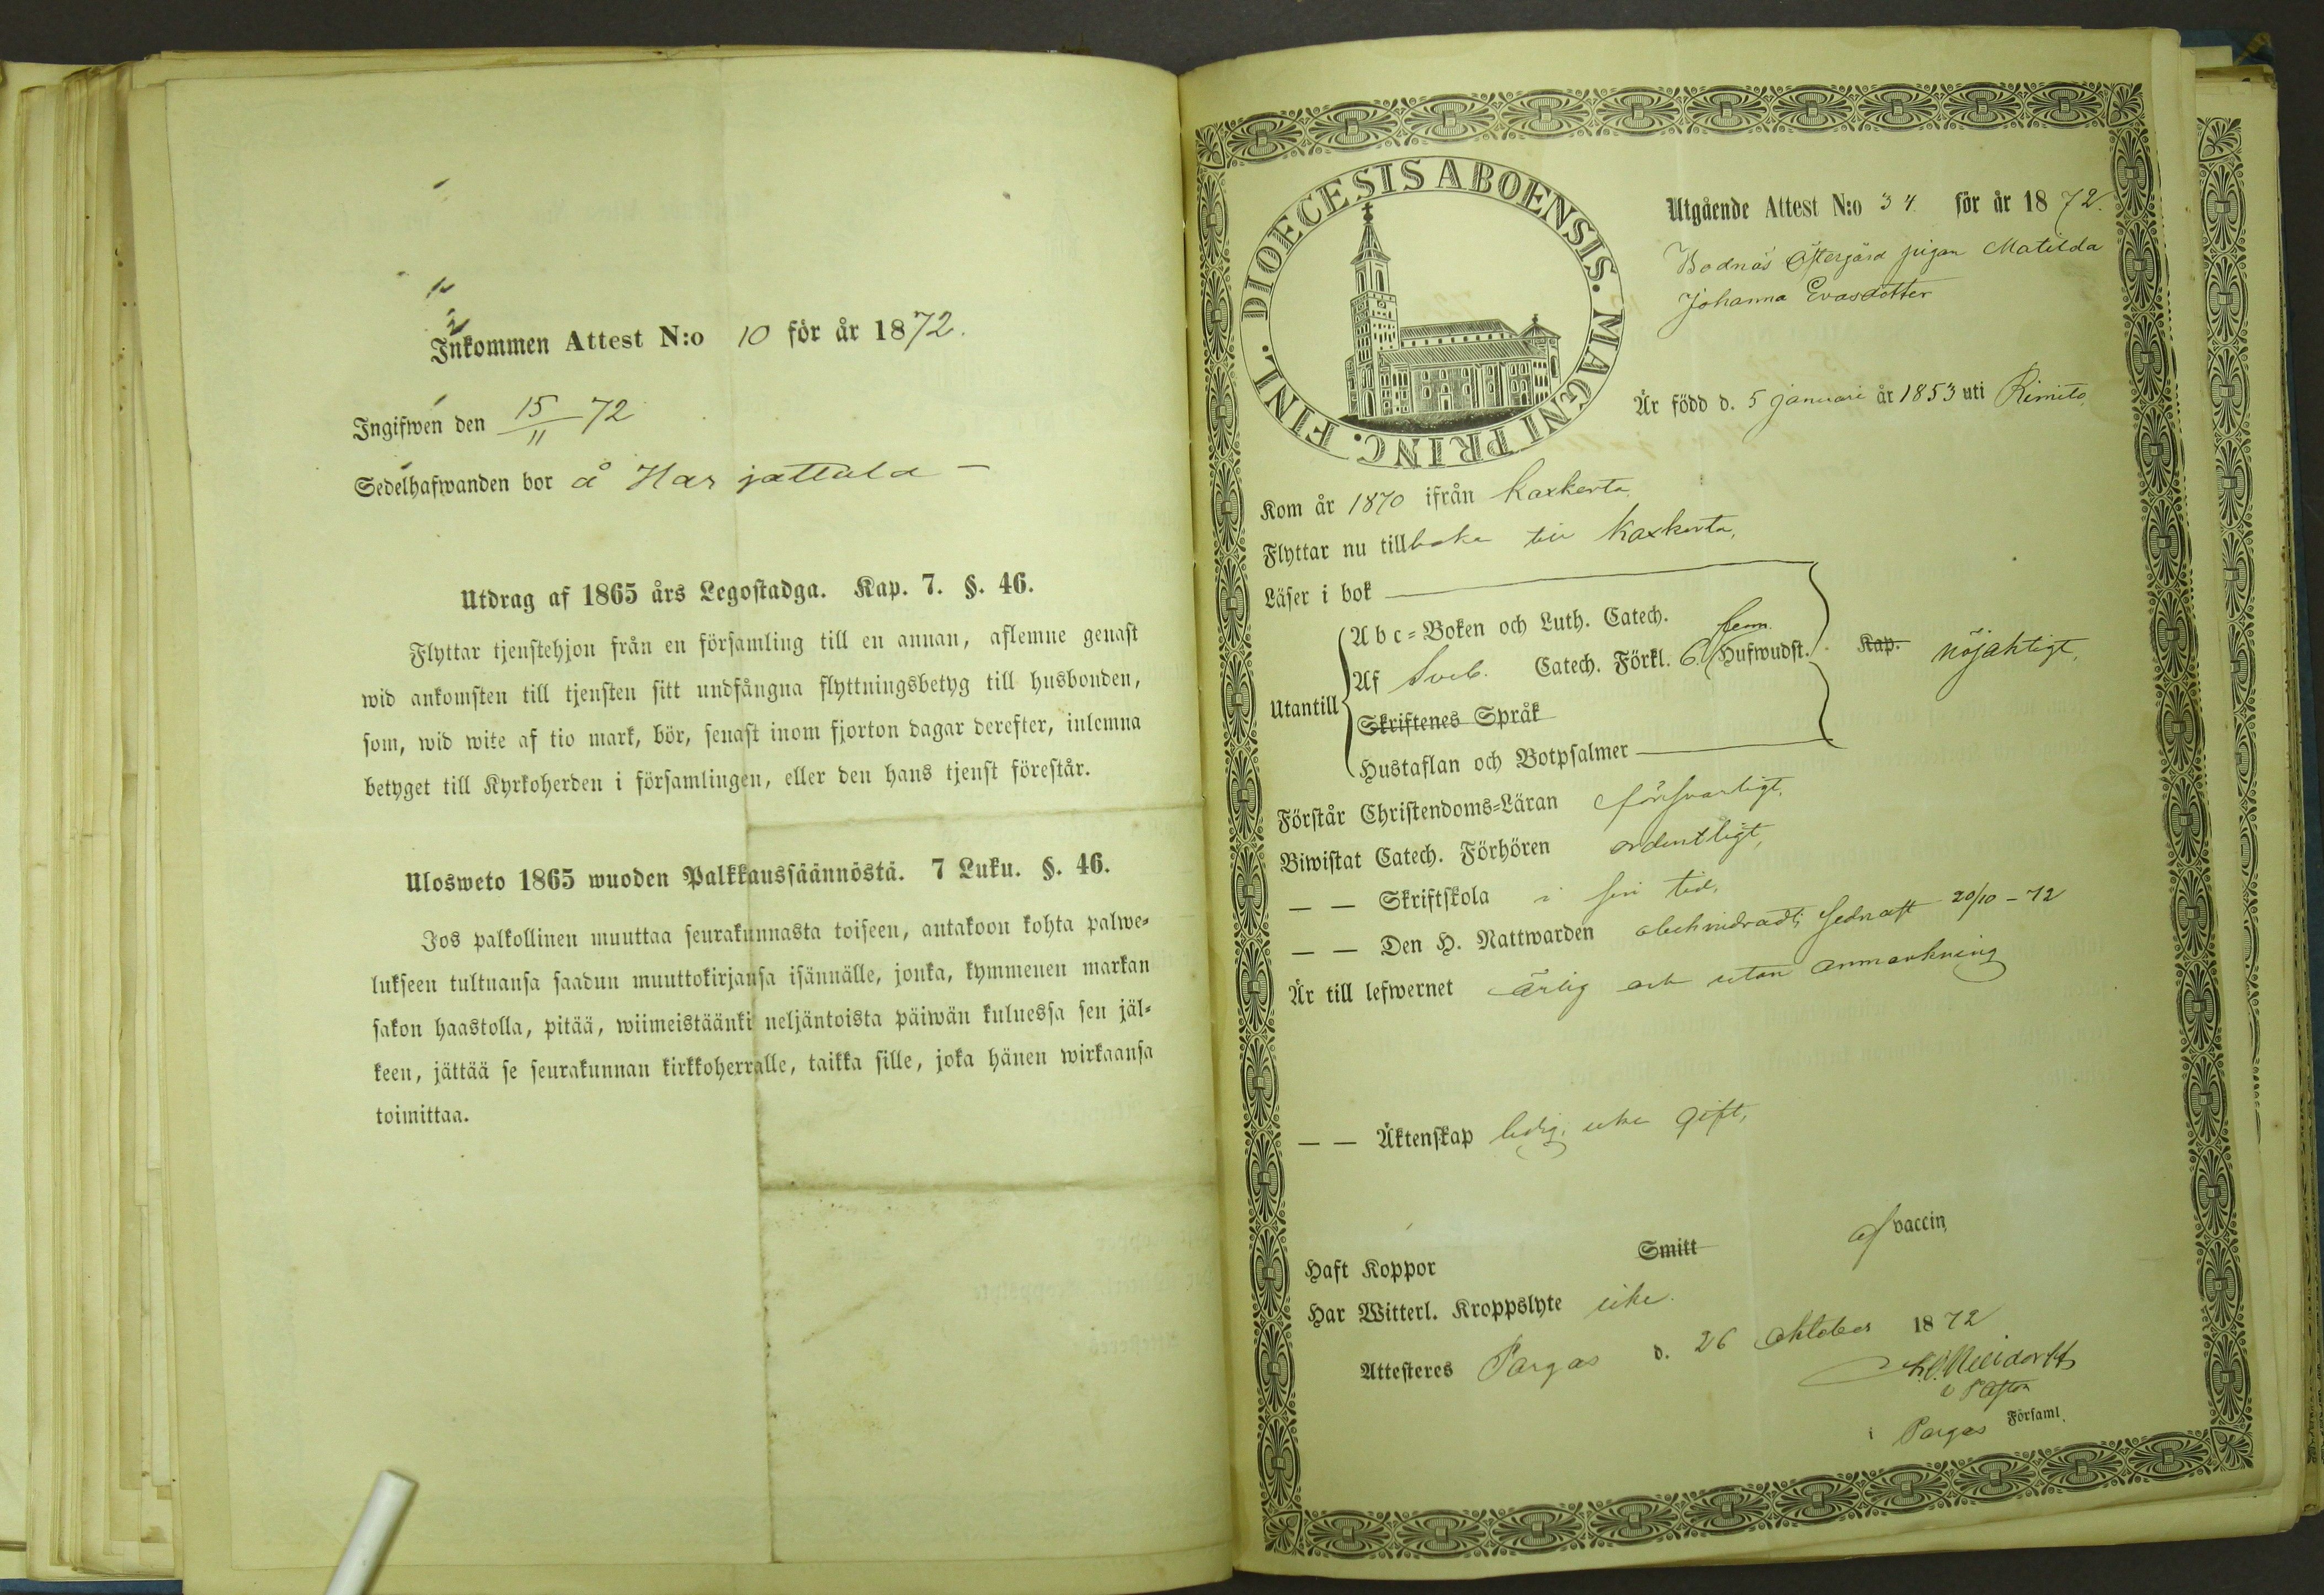 Inkommen Attest N:o 10 för år 1872.
Ingifwen den 15/11 72
Sedelhafwanden bor å Harjattula –
Utdrag af 1865 års Legostadga. Kap. 7. §. 46.
Flyttar tjenstehjon från en församling till en annan, aflemne genast
wid ankomsten till tjensten sitt undfångna flyttningsbetyg till husbonden,
som, wid wite af tio mark, bör, senast inom fjorton dagar derefter, inlemna
betyget till Kyrkoherden i församlingen, eller den hans tjenst förestår.
Ulosweto 1865 wuoden Palkkaussäännöstä. 7 Luku. §. 46.
Jos palkollinen muuttaa seurakunnasta toiseen, antakoon kohta palwe-
lukseen tultuansa saadun muuttokirjansa isännälle, jonka, kymmenen markan
sakon haastolla, pitää, wiimeistäänki neljäntoista päiwän kuluessa sen jäl-
keen, jättää se seurakunnan kirkkoherralle, taikka sille, joka hänen wirkaansa
toimittaa.
DIOECESIS ABOENSIS. MAGNI PRINC. FINL.
Utgående Attest N:o 34 för år 1872.
Bodnäs Östergård pigan Matilda
Johanna Evasdotter
Är född d. 5 Januari år 1853 uti Rimito
Kom år 1870 ifrån Kaxkerta
Flyttar nu tillbaka till Kaxkerta,
Läser i bok
Abc-Boken och Luth. Catech.
fem
Utantill Af Sveb. Catech. Förkl. 6. Hufwudst. Kap. nöjaktigt.
Skriftenes Språk
Hustaflan och Botpsalmer
Förstår Christendoms-Läran försvarligt.
Biwistat Catech. Förhören ordentligt,
— — Skriftskola i sin tid.
— — Den H. Nattwarden obehindradt; sednast 20/10 – 72
Är till lefwernet ärlig och utan anmärkning
— — Äktenskap ledig, icke gift,
Haft Koppor Smitt af vaccin
Har Witterl. Kroppslyte icke.
Attesteres Pargas d. 26 Oktober 1872
i Pargas Församl.